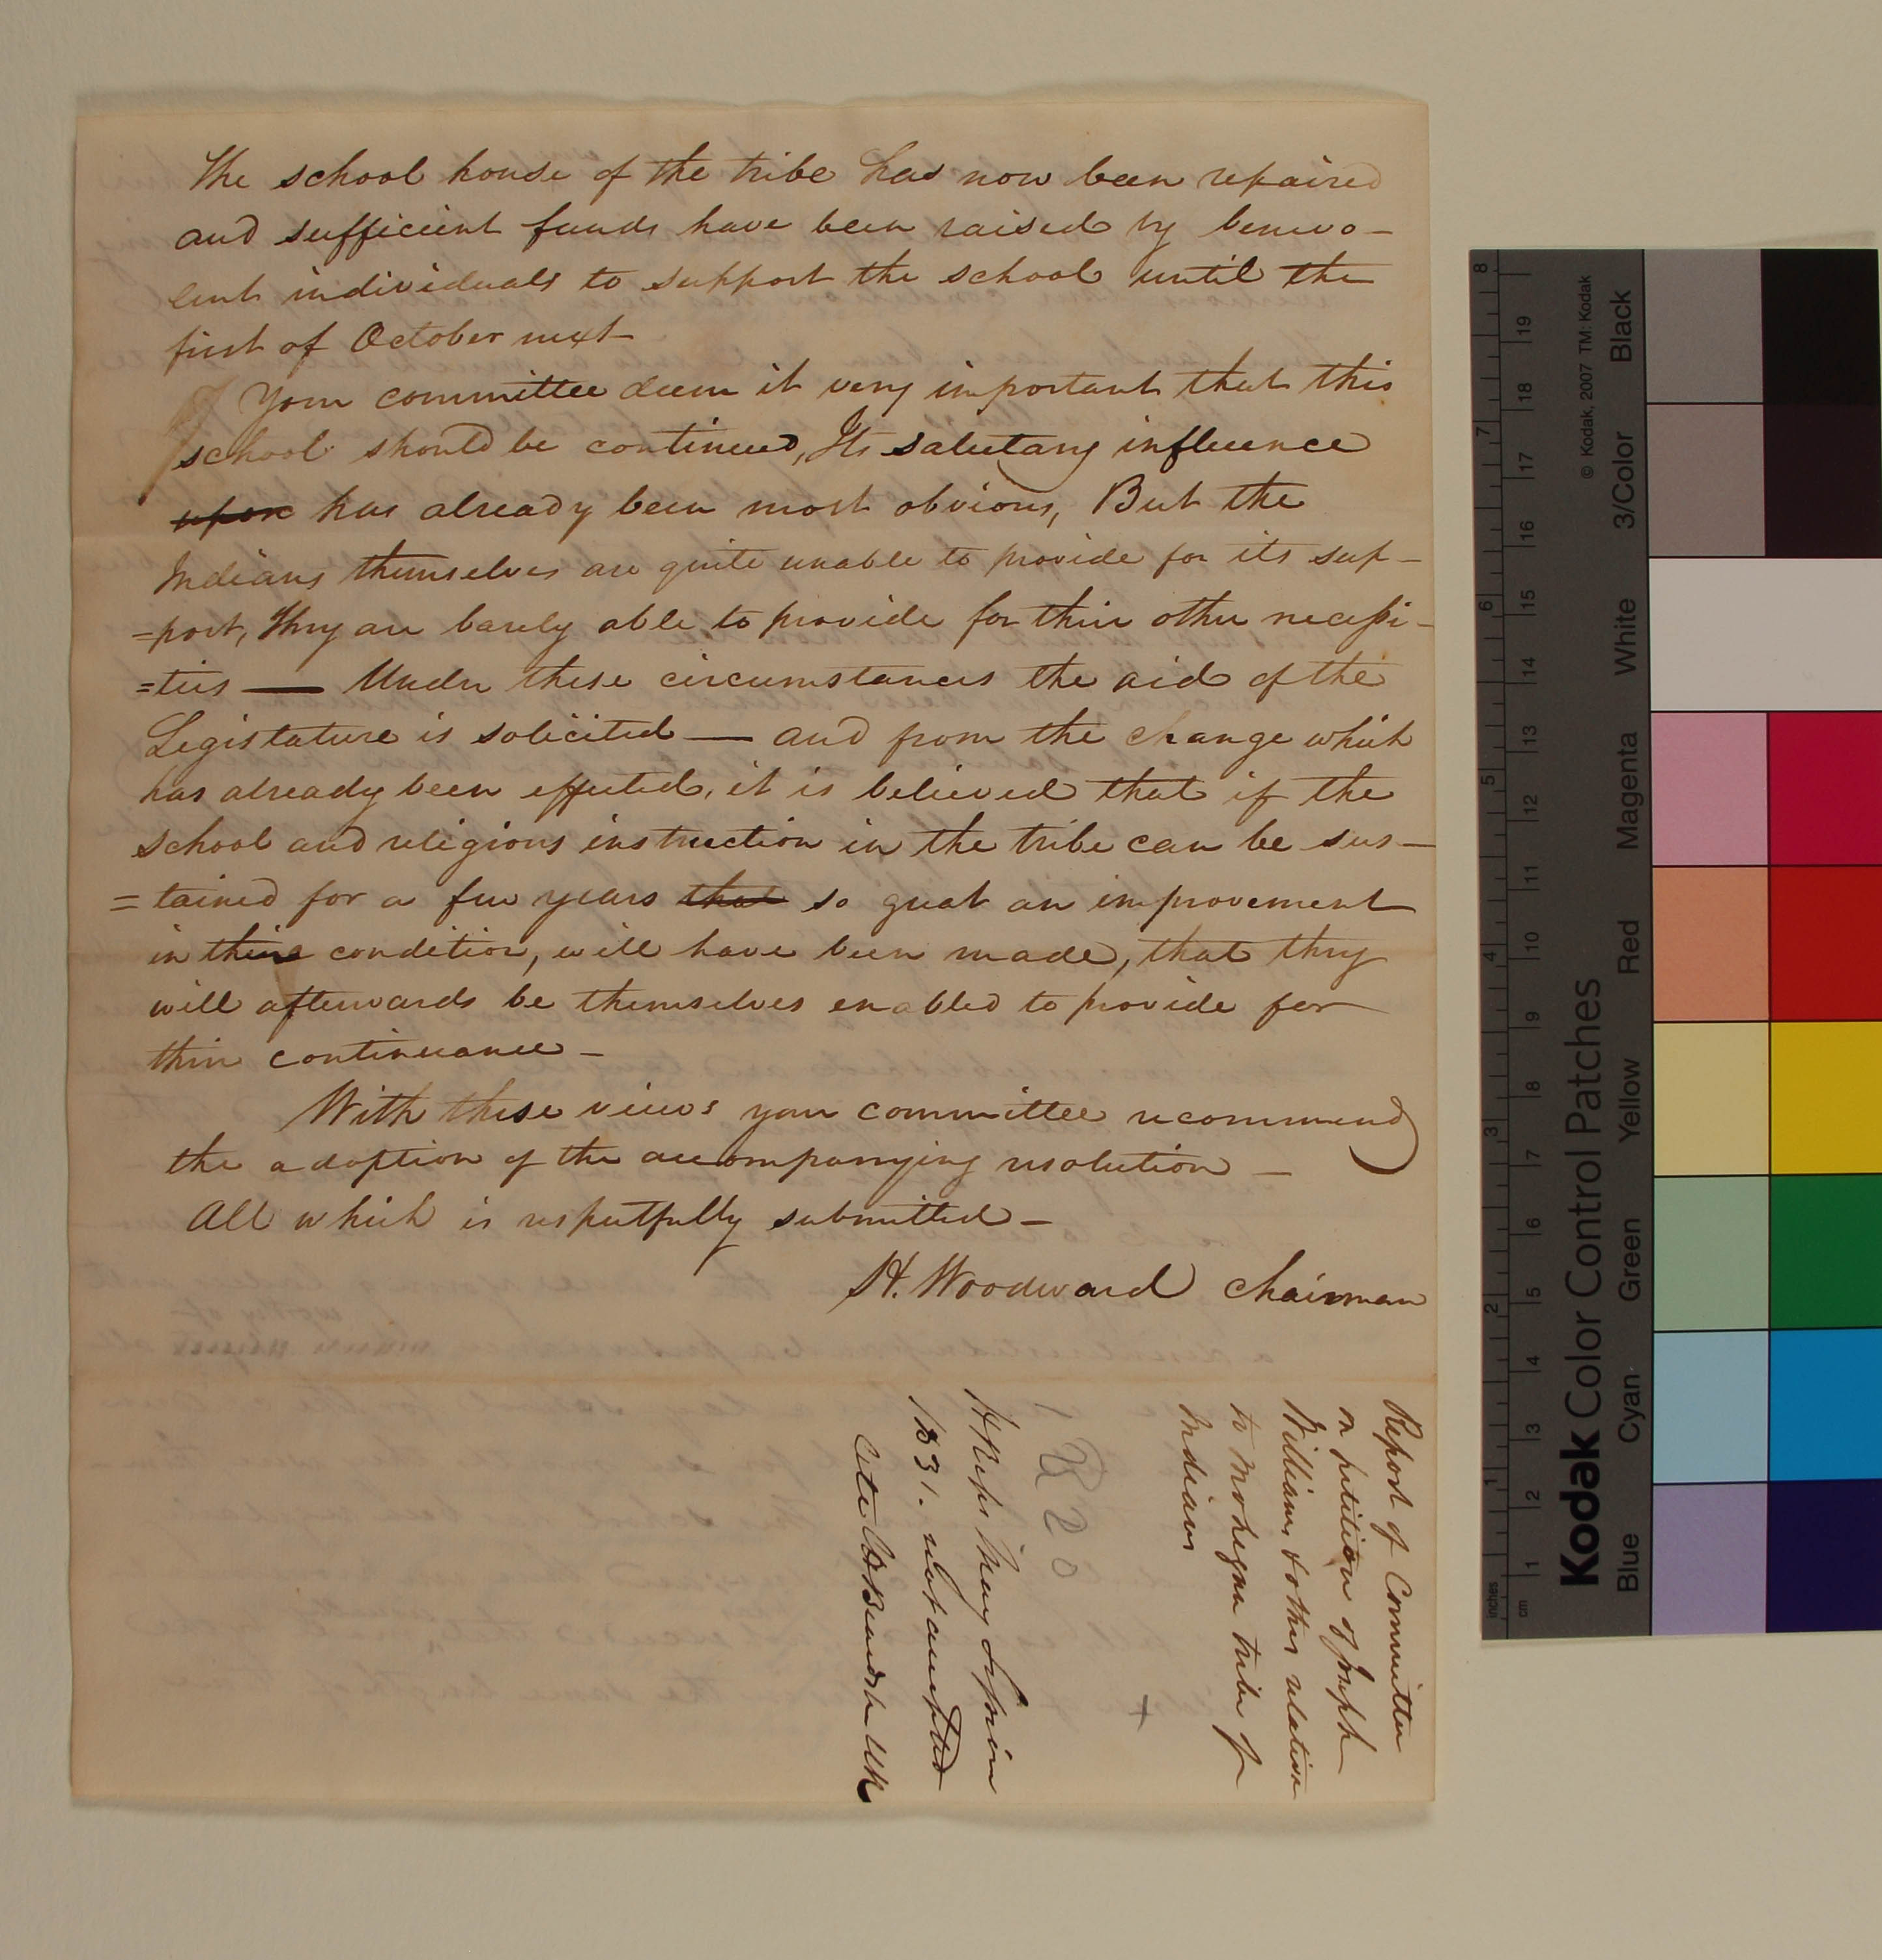 The school house of the tribe has now been repaired
and sufficient funds have been raised by benevo-
lent individuals to support the school until the
first of October next-
Your committee deem it very important that this
school should be continued, Its salutary influence
upon has already been most obvious, But the
Indians themselves are quite unable to provide for its sup-
=port, They are barely able to provide for their other necessi-
=ties — Under these circumstances the aid of the
Legislature is solicited — and from the change which
has already been effected, it is believed that if the
school and religious instruction in the tribe can be sus-
=tained for a few years that so great an improvement
in their condition, will have been made, that they
will afterwards be themselves enabled to provide for
their continuance-
With these views your committee recommend
the adoption of the accompanying resolution -
All which is respectfully submitted-
H. Woodward Chairman
Report of Committee
on petition of Joseph
Williams & others relative
to Mohegan tribe of
Indians
1
R 20
H Reps May Session
1831. Not accepted
+
© Kodak, 2007 TM: Kodak
Kodak Color Control Patches
Blue Cyan Green Yellow Red Magenta White 3/Color Black
inches 1 2 3 4 5 6 7 8
cm 1 2 3 4 5 6 7 8 9 10 11 12 13 14 15 16 17 18 19